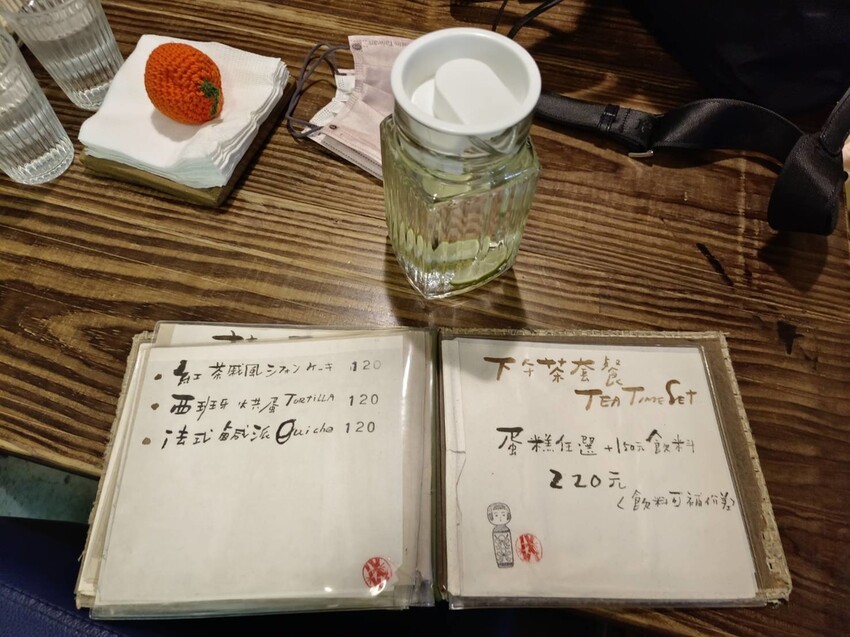 • 紅茶戚風シフォンケーキ 120
• 西班牙烘蛋 TORTILLA 120
• 法式鹹派 Quiche 120
下午茶套餐
TEA TIME SET
蛋糕任選 +150元飲料
220元
(飲料可補價差)